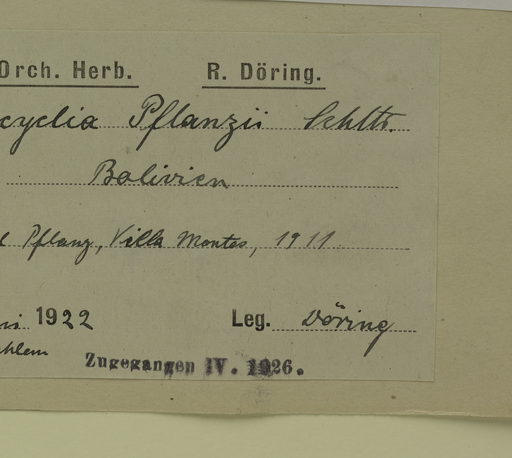 Orch. Herb. R. Döring.
cyclia Pflanzii Schltr.
Bolivien
Pflanz, Villa Montes, 1911.
1922 Leg. Döring
Zugegangen IV. 1926.